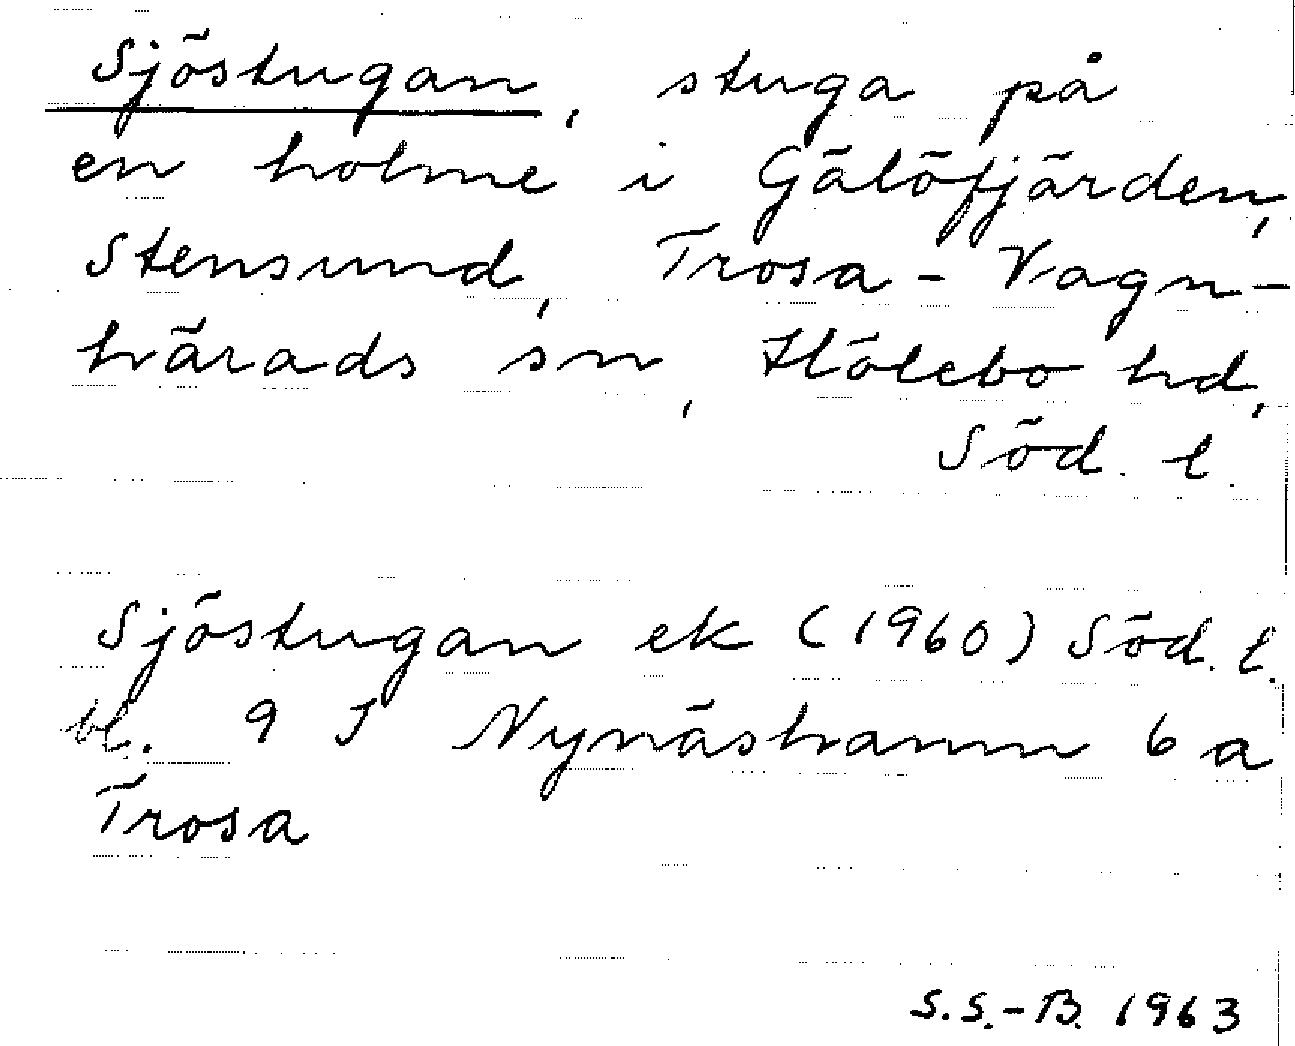 Sjöstugan, stuga på
en holme i Gälöfjärden,
Stensund, Trosa-Vagn-
härads sn, Hölebo hd,
Söd. l.
Sjöstugan ek (1960) Söd. l.
bl. 9 I Nynäshamn 6 a
Trosa
S.S.-B. 1963